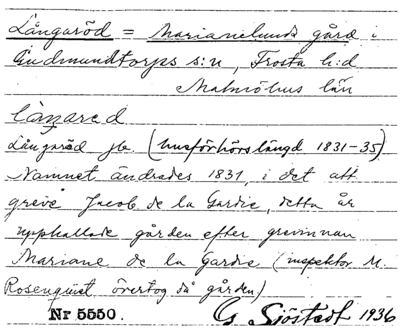 Långaröd = Marianelunds gård i
Gudmundtorps s:n, Frosta h:d
Malmöhus län
långared
Långaröd gd. (husförhörslängd 1831-35)
Namnet ändrades 1831, i det att
greve Jacob de la Gardie, detta år
uppkallade gården efter grevinnan
Mariane de la Gardie (inspektor M.
Rosenquist övertog då gården)
Nr 5550. G Sjöstedt 1936